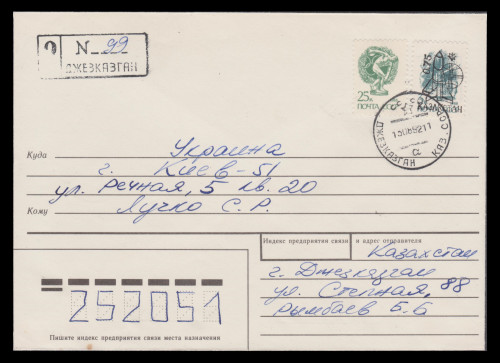 N 99
ДЖЕЗКАЗГАН
25к
ПОЧТА СССР
0,75
КАЗАКСТАН
ДЖЕЗКАЗГАН
Куда Украина
г. Киев-51
ул. Речная, 5 кв. 20
Кому Лучко С.Р.
Индекс предприятия связи и адрес отправителя
Казахстан
г. Джезказган
ул. Степная, 88
Рымбаев Б.Б
252051
Пишите индекс предприятия связи места назначения